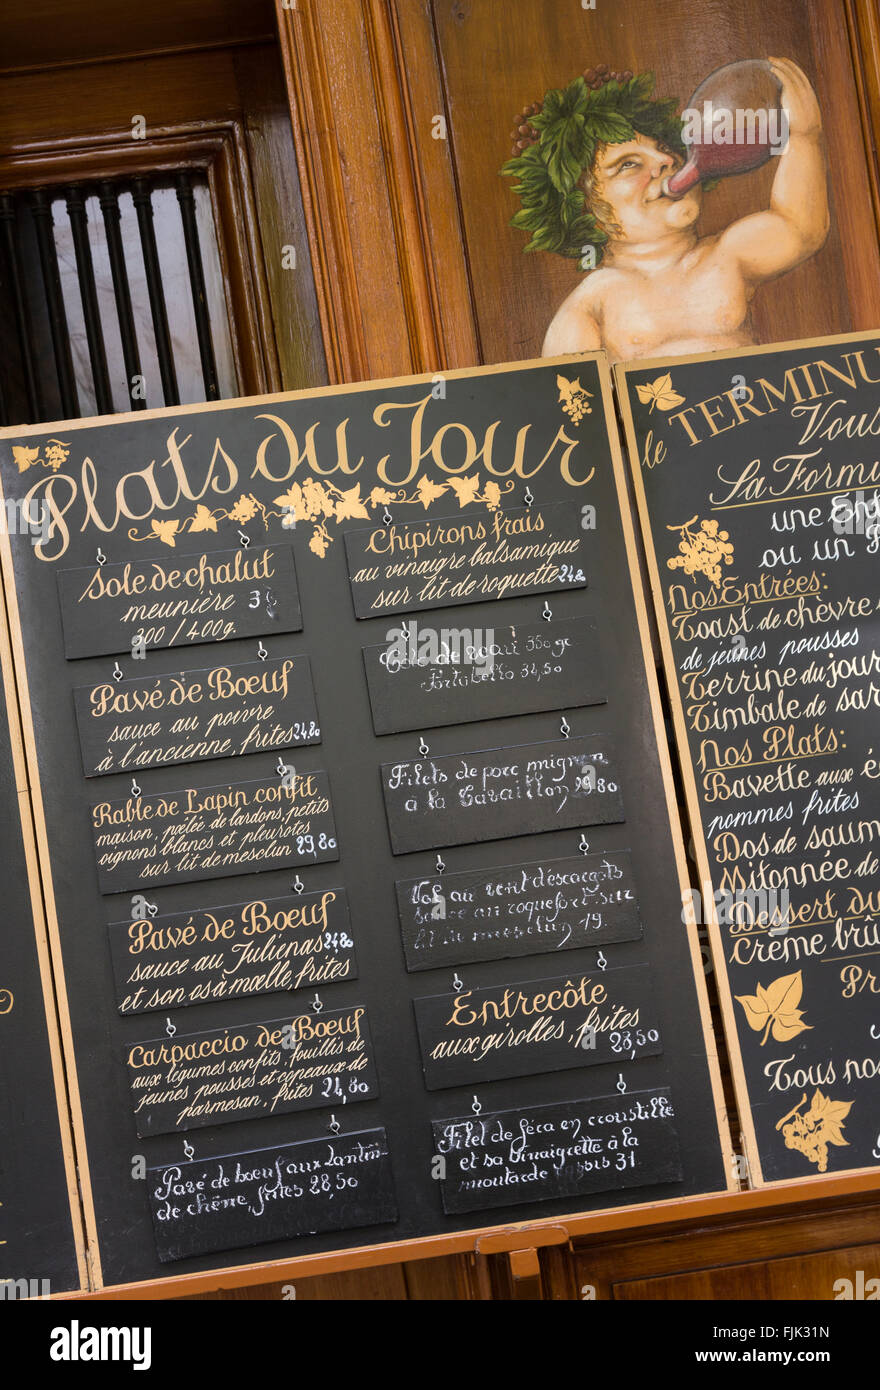 Plats du Jour
Sole de chalut
meunière
300/400g.
Pavé de Bœuf
sauce au poivre
à l'ancienne, frites 24,80
Rable de Lapin confit
maison, poêlée de lardons, petits
oignons blancs et pleurotes
sur lit de mesclun 29,80
Pavé de Bœuf
sauce au Juliénas 24,80
et son os à mœlle, frites
Carpaccio de Bœuf
aux légumes confits, fouillis de
jeunes pousses et copeaux de
parmesan, frites 24,80
Pavé de bœuf aux
de chêne, frites 28,50
Chipirons frais
au vinaigre balsamique
sur lit de roquette 24,80
de 350gr
Portobello 34,50
Filets de porc mignon
à la 29,80
Vol au vent d'escargots
sauce au roquefort sur
lit de mesclun 19.
Entrecôte
aux girolles, frites
23,50
Filet de féra en croustille
et sa vinaigrette à la
moutarde 31
le TERMINU
Vous
La Formu
une Ent
ou un P
Nos Entrées:
Toast de chèvre
de jeunes pousses
Terrine du jour
Timbale de sar
Nos Plats:
Bavette aux é
pommes frites
Dos de saum
Mitonnée de
Dessert du
Crème brû
Pr
Tous nos
alamy
Image ID: FJK31N
www.alamy.com